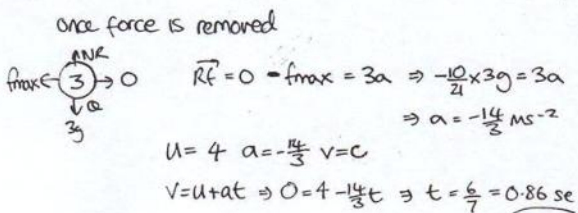 once force is removed
NR
fmax ← 3 → 0
3g
RF = 0 - fmax = 3a ⇒ -10/21 × 3g = 3a
⇒ a = -14/3 ms-2
u = 4 a = -14/3 v = c
v = u + at ⇒ 0 = 4 - 14/3 t ⇒ t = 6/7 = 0.86 se